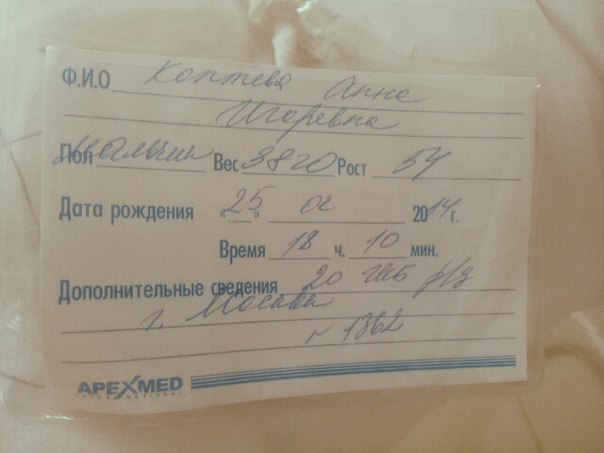 Ф.И.О Коптева Анна
Игоревна
Пол мальчик Вес 3820 Рост 54
Дата рождения "25" 2014 г.
Время 18 ч. 10 мин.
Дополнительные сведения 20 р/д
г. Москва
N 1362
APEXMED
INTERNATIONAL